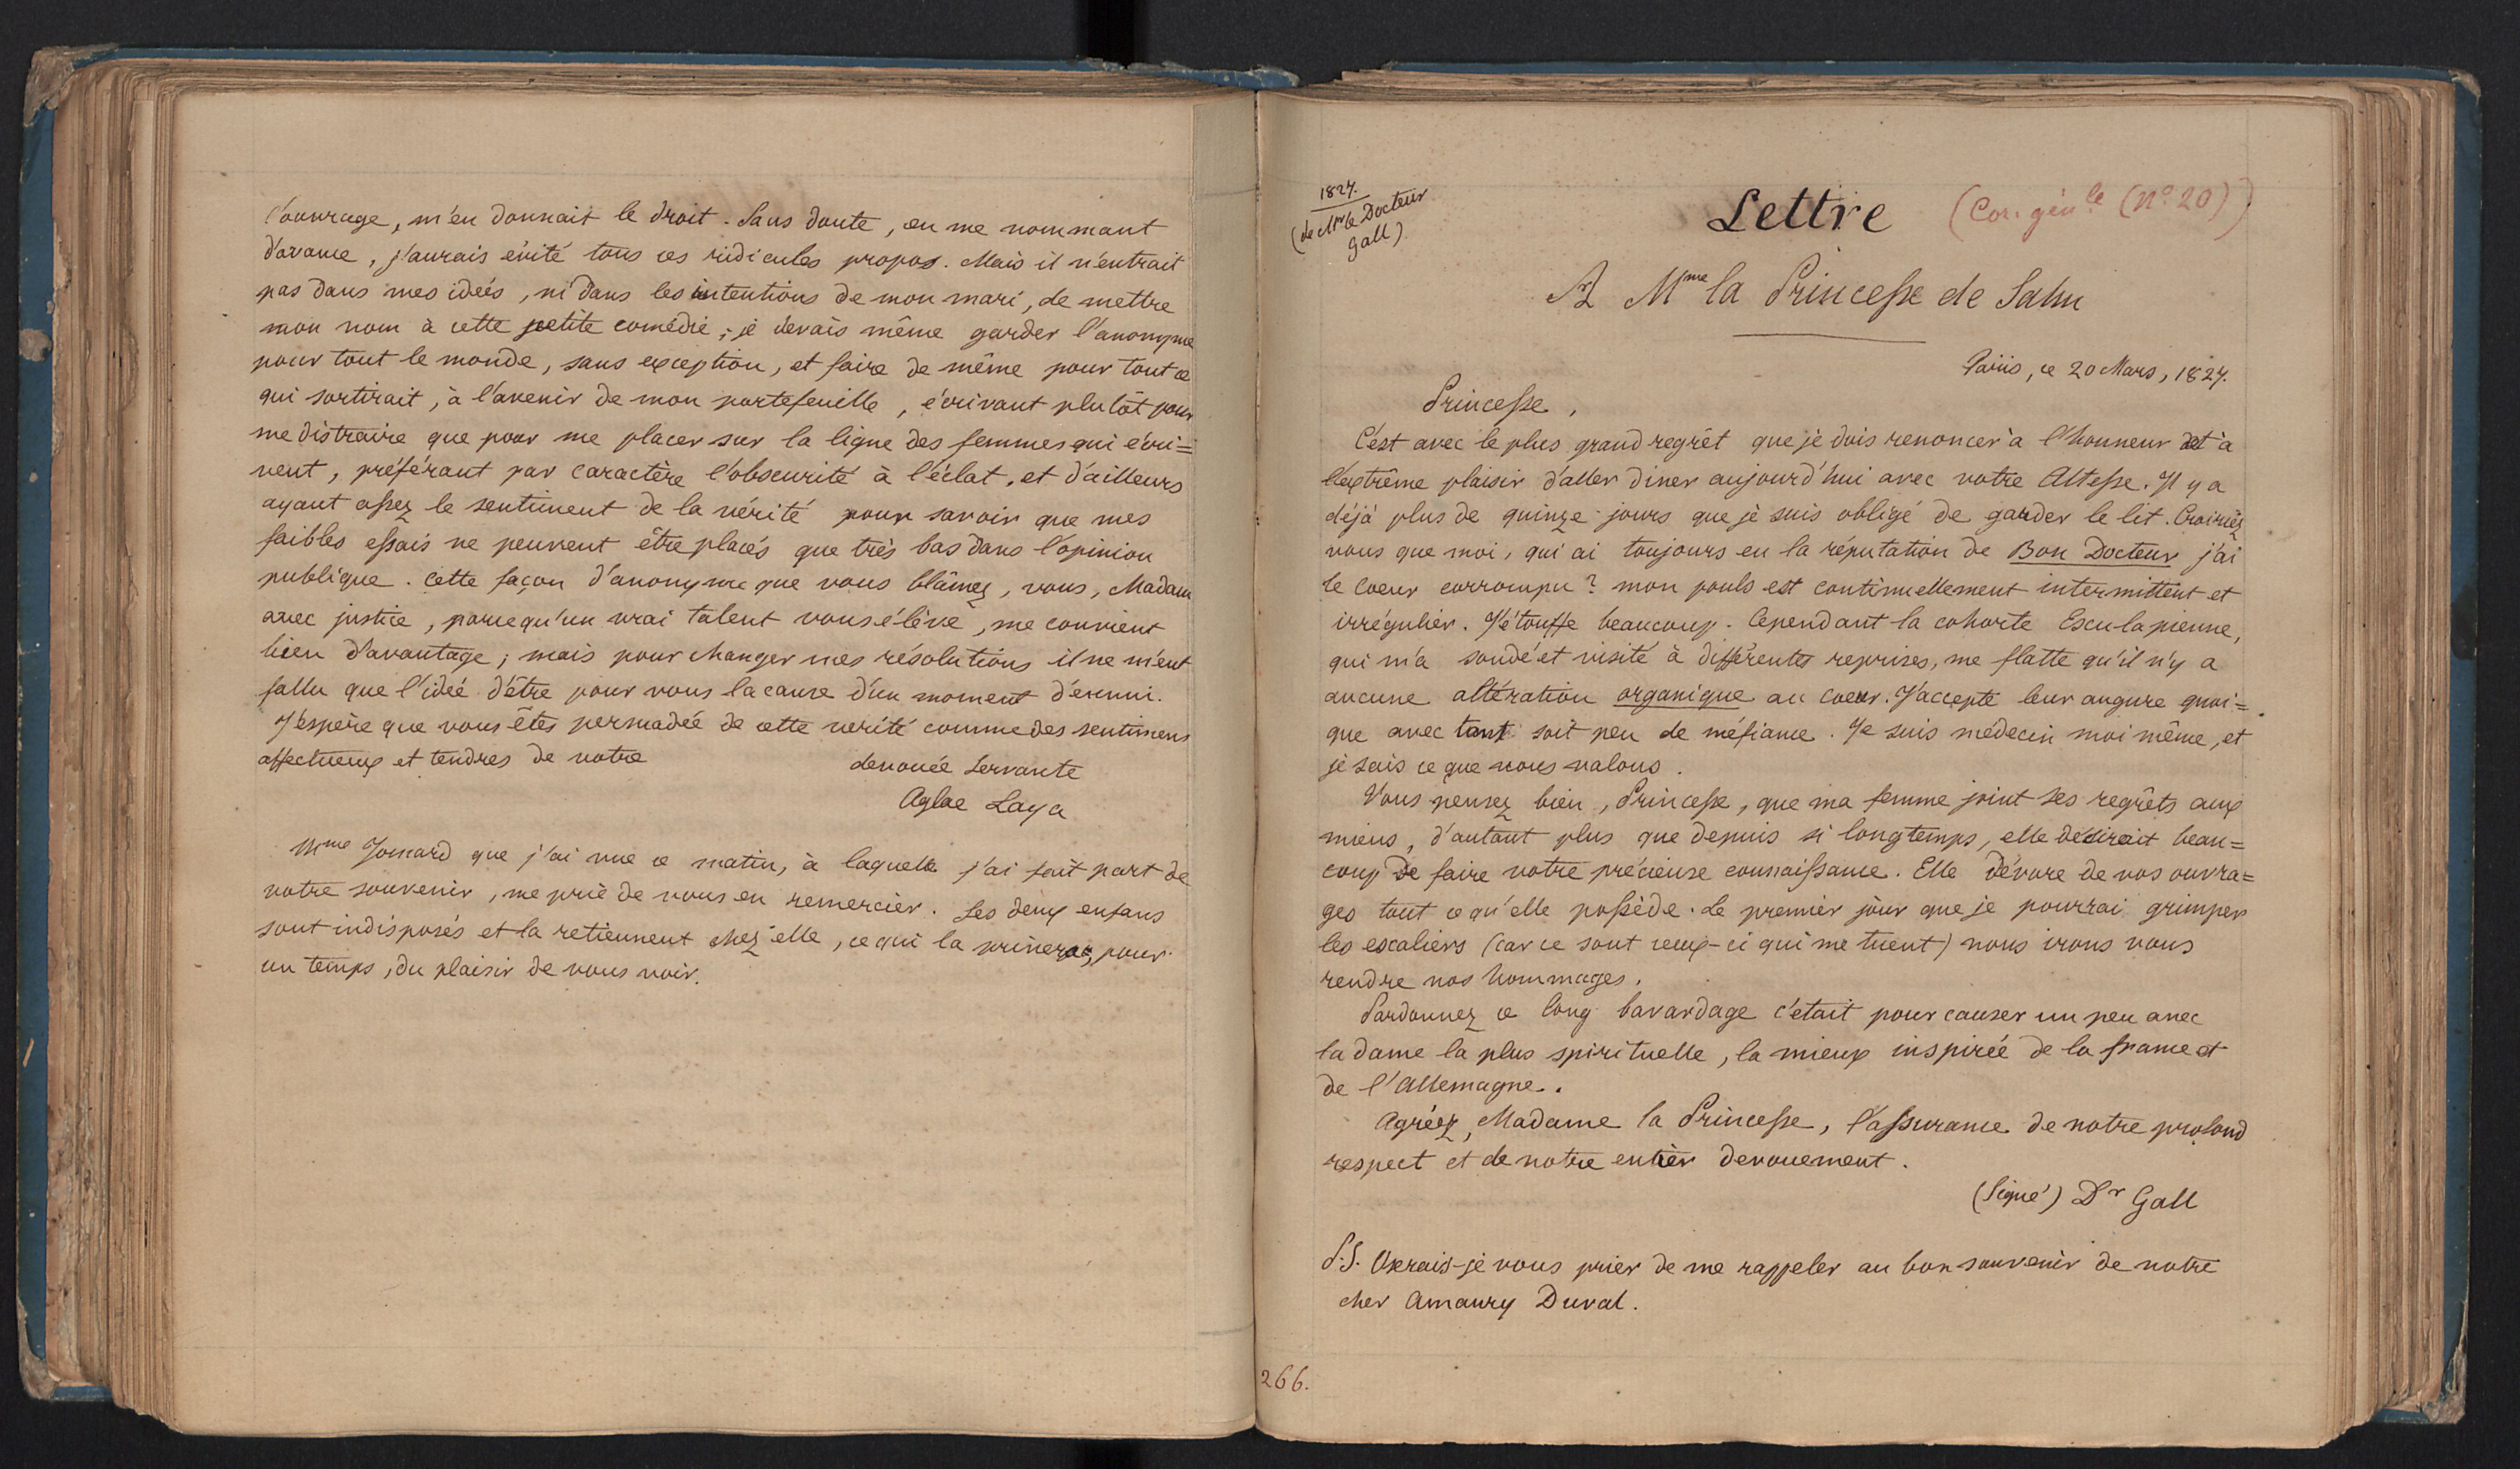 l'ouvrage, m'en donnait le droit. Sans doute, en me nommant
d'avance, j'aurais évité tous ces ridicules propos. Mais il n'entrait
pas dans mes ideés, ni dans les intentions de mon mari, de mettre
mon nom à cette petite comédie; je devais même garder l'anonyme
pour tout le monde, sans exception, et faire de même pour tout ce
qui sortirait, à l'avenir de mon portefeuille, écrivant plutôt pour
me distraire que pour me placer sur la ligne des femmes qui écri=
vent, préférant par caractère l'obscurité à l'éclat, et d'ailleurs
ayant assez le sentiment de la vérité pour savoir que mes
faibles essais ne peuvent être placés que très bas dans l'opinion
publique. Cette façon d'anonyme que vous blâmez, vous, Madame
avec justice, parcequ'un vrai talent vous élève, me convient
bien d'avantage; mais pour changer mes résolutions il ne m'eut
fallu que l'ideé d'être pour vous la cause d'un moment d'ennui.
J'espère que vous êtes persuadée de cette verité comme des sentimens
affectueux et tendres de votre
devouée Servante
Aglae Laya
Mme Jomard que j'ai vue ce matin, à laquelle j'ai fait part de
votre souvenir, me prie de vous en remercier. Ses deux enfans
sont indisposés et la retiennent chez elle, ce qui la privera, pour
un temps, du plaisir de vous voir.
1827.
(de Mr le Docteur
Gall)
Lettre (Cor. génle (No 20))
A Mme la Princesse de Salm
Paris, ce 20 Mars, 1827.
Princesse,
C'est avec le plus grand regrêt que je dois renoncer à l'honneur et à
l'extrême plaisir d'aller diner aujourd'hui avec votre Altesse. Il y a
déjà plus de quinze jours que je suis obligé de garder le lit. Croiriez
vous que moi, qui ai toujours eu la réputation de Bon Docteur j'ai
le coeur corrompu? mon pouls est continuellement intermittent et
irrégulier. J'étouffe beaucoup. Cependant la cohorte Esculapienne,
qui m'a sondé et visité à différentes reprises, me flatte qu'il n'y a
aucune altération organique au coeur. J'accepte leur augure quoi=
que avec tant soit peu de méfiance. Je suis médecin moi même, et
je sais ce que nous valons.
Vous pensez bien, Princesse, que ma femme joint ses regrêts aux
miens, d'autant plus que depuis si longtemps, elle desirait beau=
coup de faire votre précieuse connaissance. Elle dévore de vos ouvra=
ges tout ce qu'elle possède. Le premier jour que je pourrai grimper
les escaliers (car ce sont ceux-ci qui me tuent) nous irons vous
rendre nos hommages.
Pardonnez ce long bavardage c'était pour causer un peu avec
la dame la plus spirituelle, la mieux inspirée de la france et
de l'Allemagne.
Agréez, Madame la Princesse, l'assurance de notre profond
respect et de notre entier devouement.
(Signé) Dr Gall
P.S. Oserais-je vous prier de me rappeler au bon souvenir de notre
cher Amaury Duval.
266.